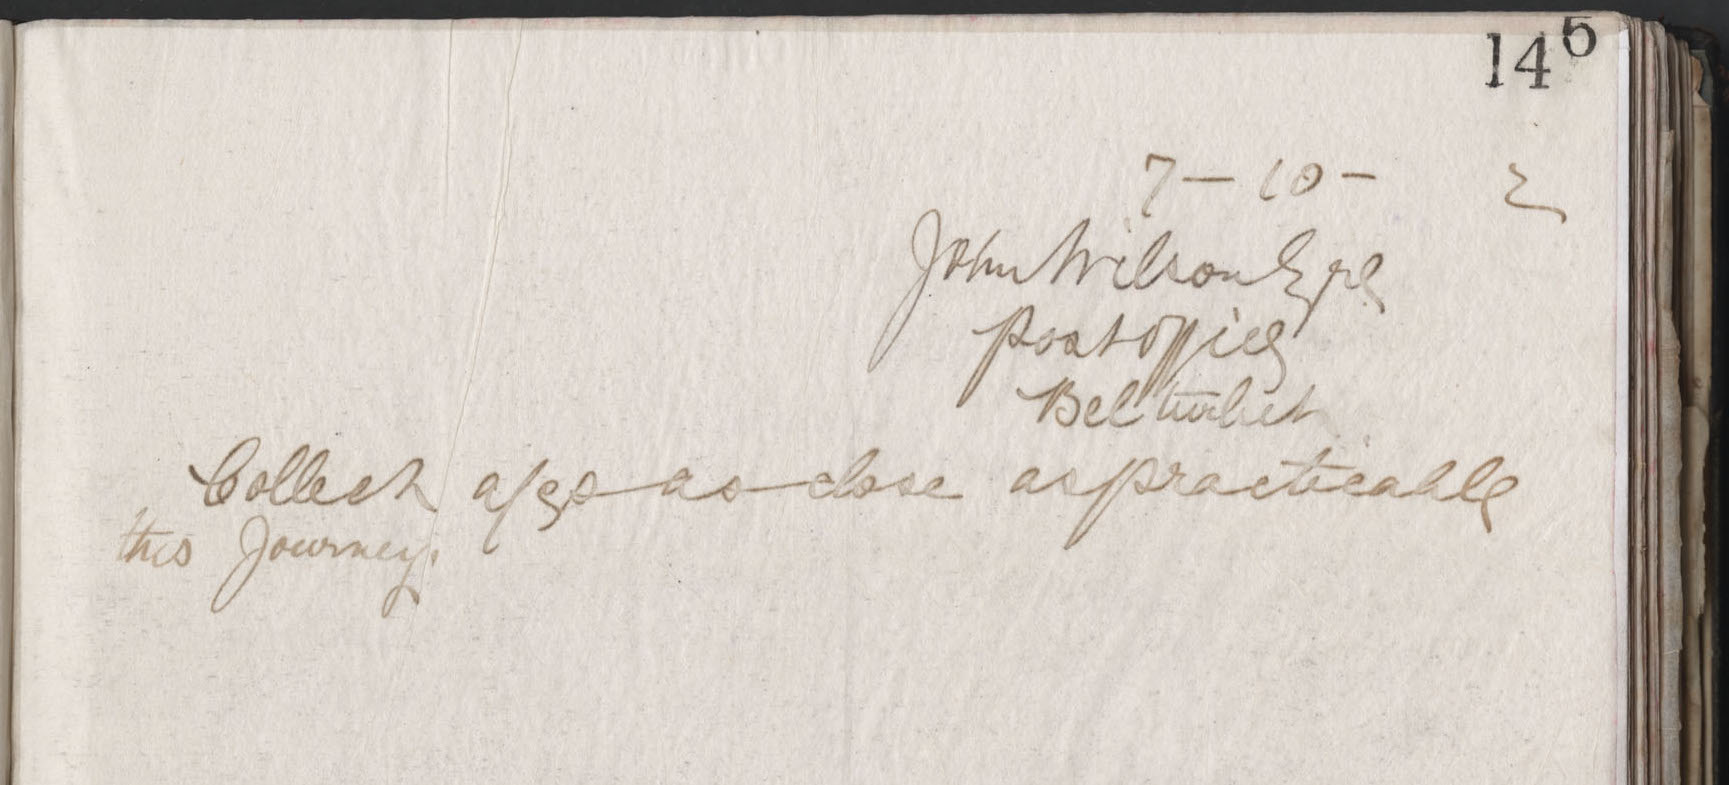 146
7 - 10 - 2
John Wilson Esqre
Post office
Belturbet
Collect a/cs as close as practicable
this Journey.